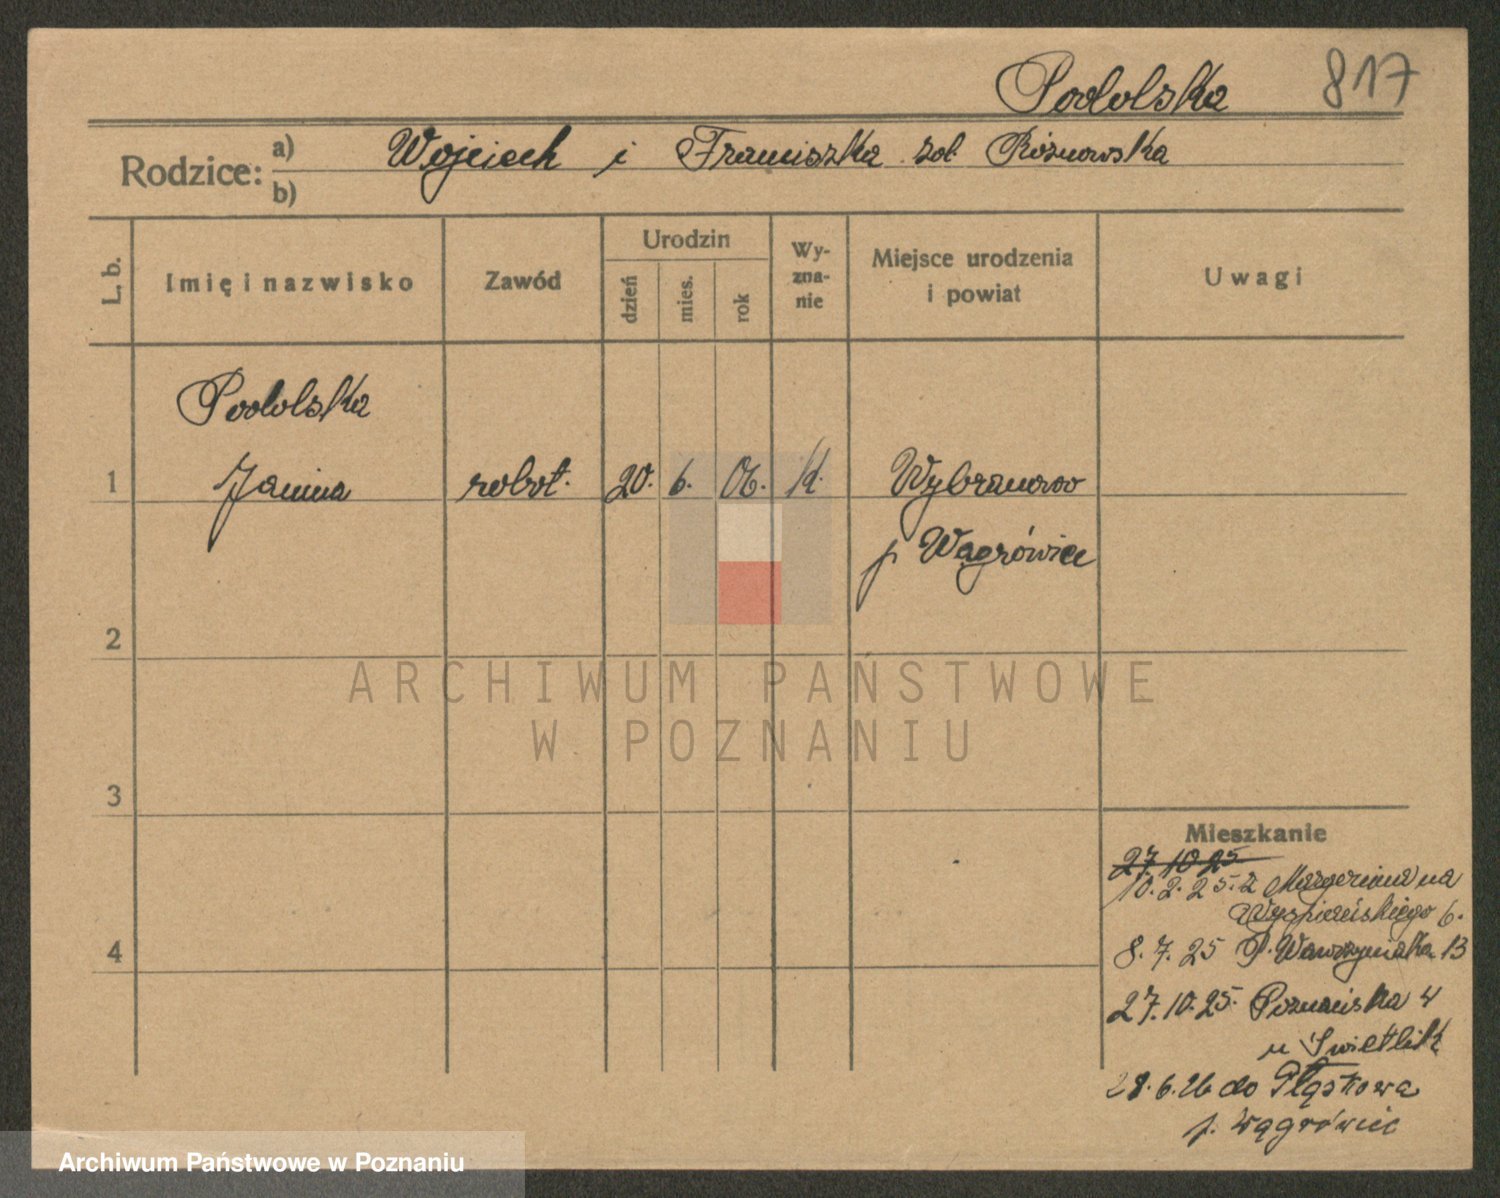 Podolska 817
Rodzice: a) Wojciech i Franciszka Różnowska
b)
L. b.
Imię i nazwisko
Zawód
Urodzin
dzień
mies.
rok
Wy-
zna-
nie
Miejsce urodzenia
i powiat
Uwagi
Podolska
1 Janina robot. 20. 6. 06. kt. Wybranowo
p Wągrówiec
2
3
4
ARCHIWUM PAŃSTWOWE
W POZNANIU
Mieszkanie
27 10 25
10. 2. 25. z Margonina na
Wyspiańskiego 6.
8. 7. 25 P. Wawrzyniaka 13
27. 10. 25. Poznańska 4
u Swietlik
28. 6. 26 do
p. Wągrówiec
Archiwum Państwowe w Poznaniu